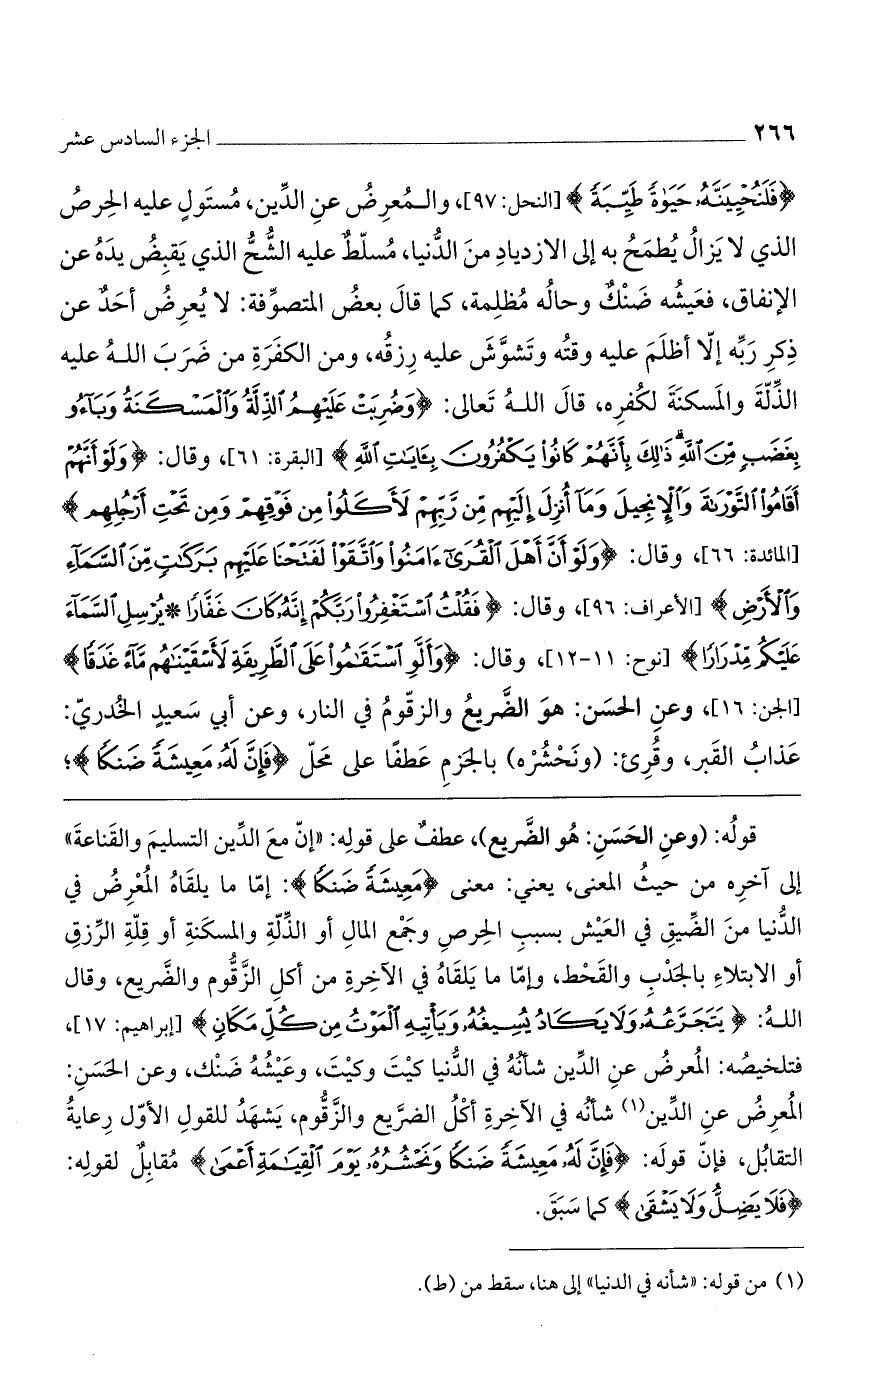 ٢٦٦ ــــــ الجزء السادس عشر
﴿فَلَنُحْيِيَنَّهُۥ حَيَوٰةً طَيِّبَةً﴾ [النحل: ٩٧]، والـمُعرِضُ عنِ الدِّين، مُستَولٍ عليه الحِرصُ
الذي لا يَزالُ يُطمَحُ به إلى الازديادِ منَ الدُّنيا، مُسلّطٌ عليه الشُّحُّ الذي يَقبِضُ يدَهُ عن
الإنفاق، فعَيشُه ضَنْكٌ وحالُه مُظلِمة، كما قالَ بعضُ المتصوِّفة: لا يُعرِضُ أحَدٌ عن
ذِكرِ رَبِّه إلّا أظلَمَ عليه وقتُه وتَشوَّشَ عليه رِزقُه، ومن الكفَرَةِ من ضَرَبَ اللـهُ عليه
الذِّلّةَ والمَسكنَةَ لكُفرِه، قالَ اللـهُ تَعالى: ﴿وَضُرِبَتْ عَلَيْهِمُ ٱلذِّلَّةُ وَٱلْمَسْكَنَةُ وَبَآءُو
بِغَضَبٍ مِّنَ ٱللَّهِ ۗ ذَٰلِكَ بِأَنَّهُمْ كَانُوا۟ يَكْفُرُونَ بِـَٔايَـٰتِ ٱللَّهِ﴾ [البقرة: ٦١]، وقال: ﴿وَلَوْ أَنَّهُمْ
أَقَامُوا۟ ٱلتَّوْرَىٰةَ وَٱلْإِنجِيلَ وَمَآ أُنزِلَ إِلَيْهِم مِّن رَّبِّهِمْ لَأَكَلُوا۟ مِن فَوْقِهِمْ وَمِن تَحْتِ أَرْجُلِهِم﴾
[المائدة: ٦٦]، وقال: ﴿وَلَوْ أَنَّ أَهْلَ ٱلْقُرَىٰٓ ءَامَنُوا۟ وَٱتَّقَوْا۟ لَفَتَحْنَا عَلَيْهِم بَرَكَـٰتٍ مِّنَ ٱلسَّمَآءِ
وَٱلْأَرْضِ﴾ [الأعراف: ٩٦]، وقال: ﴿فَقُلْتُ ٱسْتَغْفِرُوا۟ رَبَّكُمْ إِنَّهُۥ كَانَ غَفَّارًا * يُرْسِلِ ٱلسَّمَآءَ
عَلَيْكُم مِّدْرَارًا﴾ [نوح: ١١-١٢]، وقال: ﴿وَأَلَّوِ ٱسْتَقَـٰمُوا۟ عَلَى ٱلطَّرِيقَةِ لَأَسْقَيْنَـٰهُم مَّآءً غَدَقًا﴾
[الجن: ١٦]، وعنِ الحسَن: هوَ الضَّريعُ والزقّومُ في النار، وعن أبي سَعيدٍ الخُدريّ:
عَذابُ القَبر، وقُرِئ: (ونَحْشُرْه) بالجَزمِ عَطفًا على محَلّ ﴿فَإِنَّ لَهُۥ مَعِيشَةً ضَنكًا﴾؛
قولُه: (وعنِ الحَسَنِ: هُو الضَّريع)، عطفٌ على قولِه: «إنّ معَ الدِّين التسليمَ والقَناعةَ»
إلى آخرِه من حيثُ المعنى، يعني: معنى ﴿مَعِيشَةً ضَنكًا﴾: إمّا ما يلقَاهُ المُعْرِضُ في
الدُّنيا منَ الضِّيقِ في العَيْش بسببِ الحِرصِ وجَمْعِ المالِ أو الذِّلّةِ والمسكَنةِ أو قِلّةِ الرِّزقِ
أو الابتلاءِ بالجَدْبِ والقَحْط، وإمّا ما يَلقَاهُ في الآخِرةِ من أكلِ الزَّقُّوم والضَّريع، وقال
اللـهُ: ﴿يَتَجَرَّعُهُۥ وَلَا يَكَادُ يُسِيغُهُۥ وَيَأْتِيهِ ٱلْمَوْتُ مِن كُلِّ مَكَانٍ﴾ [إبراهيم: ١٧]،
فتلخيصُه: المُعرضُ عنِ الدِّين شأنُهُ في الدُّنيا كيْتَ وكيْتَ، وعَيْشُهُ ضَنْك، وعن الحَسَنِ:
المُعرِضُ عنِ الدِّين(١) شأنُه في الآخِرةِ أكْلُ الضَّريع والزَّقُّوم، يَشهَدُ للقولِ الأوّلِ رِعايةُ
التقابُل، فإنّ قولَه: ﴿فَإِنَّ لَهُۥ مَعِيشَةً ضَنكًا وَنَحْشُرُهُۥ يَوْمَ ٱلْقِيَـٰمَةِ أَعْمَىٰ﴾ مُقابِلٌ لقولِه:
﴿فَلَا يَضِلُّ وَلَا يَشْقَىٰ﴾ كما سَبَقَ.
(١) من قوله: «شأنه في الدنيا» إلى هنا، سقط من (ط).